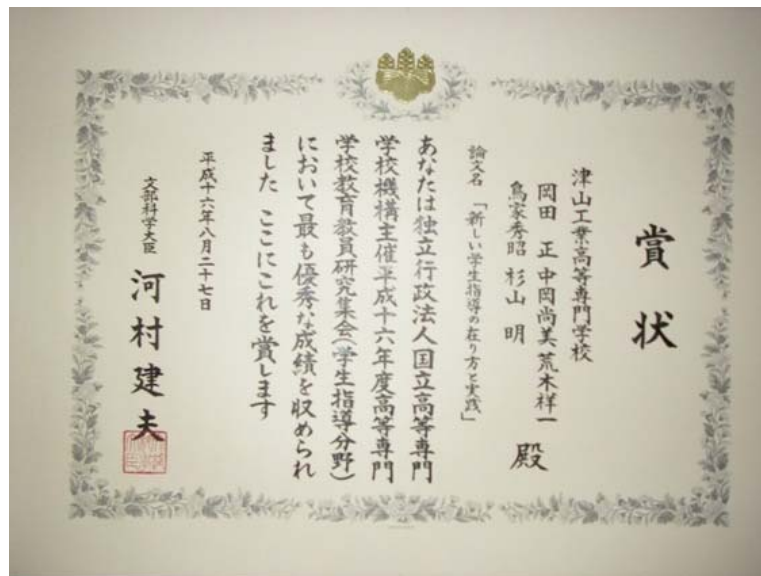 賞状
津山工業高等専門学校
岡田 正 中岡尚美 荒木祥一
鳥家秀昭 杉山 明
殿
論文名 「新しい学生指導の在り方と実践」
あなたは独立行政法人国立高等専門
学校機構主催平成十六年度高等専門
学校教育教員研究集会(学生指導分野)
において最も優秀な成績を収められ
ました ここにこれを賞します
平成十六年八月二十七日
文部科学大臣 河村建夫